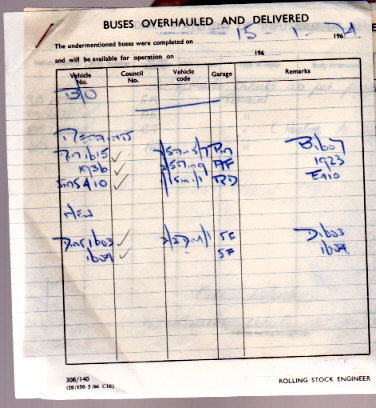 BUSES OVERHAULED AND DELIVERED
The undermentioned buses were completed on 15-1-74 196
and will be available for operation on 196
Vehicle No. Council No. Vehicle code Garage Remarks
BO
Repaints
Rm1615 ✓ PM B1607
1936 ✓ AF 1923
Sms410 ✓ RD E410
New
Dms1603 ✓ SF D1603
1604 ✓ SF 1604
308/140
(20/150 5/66 C16)
ROLLING STOCK ENGINEER